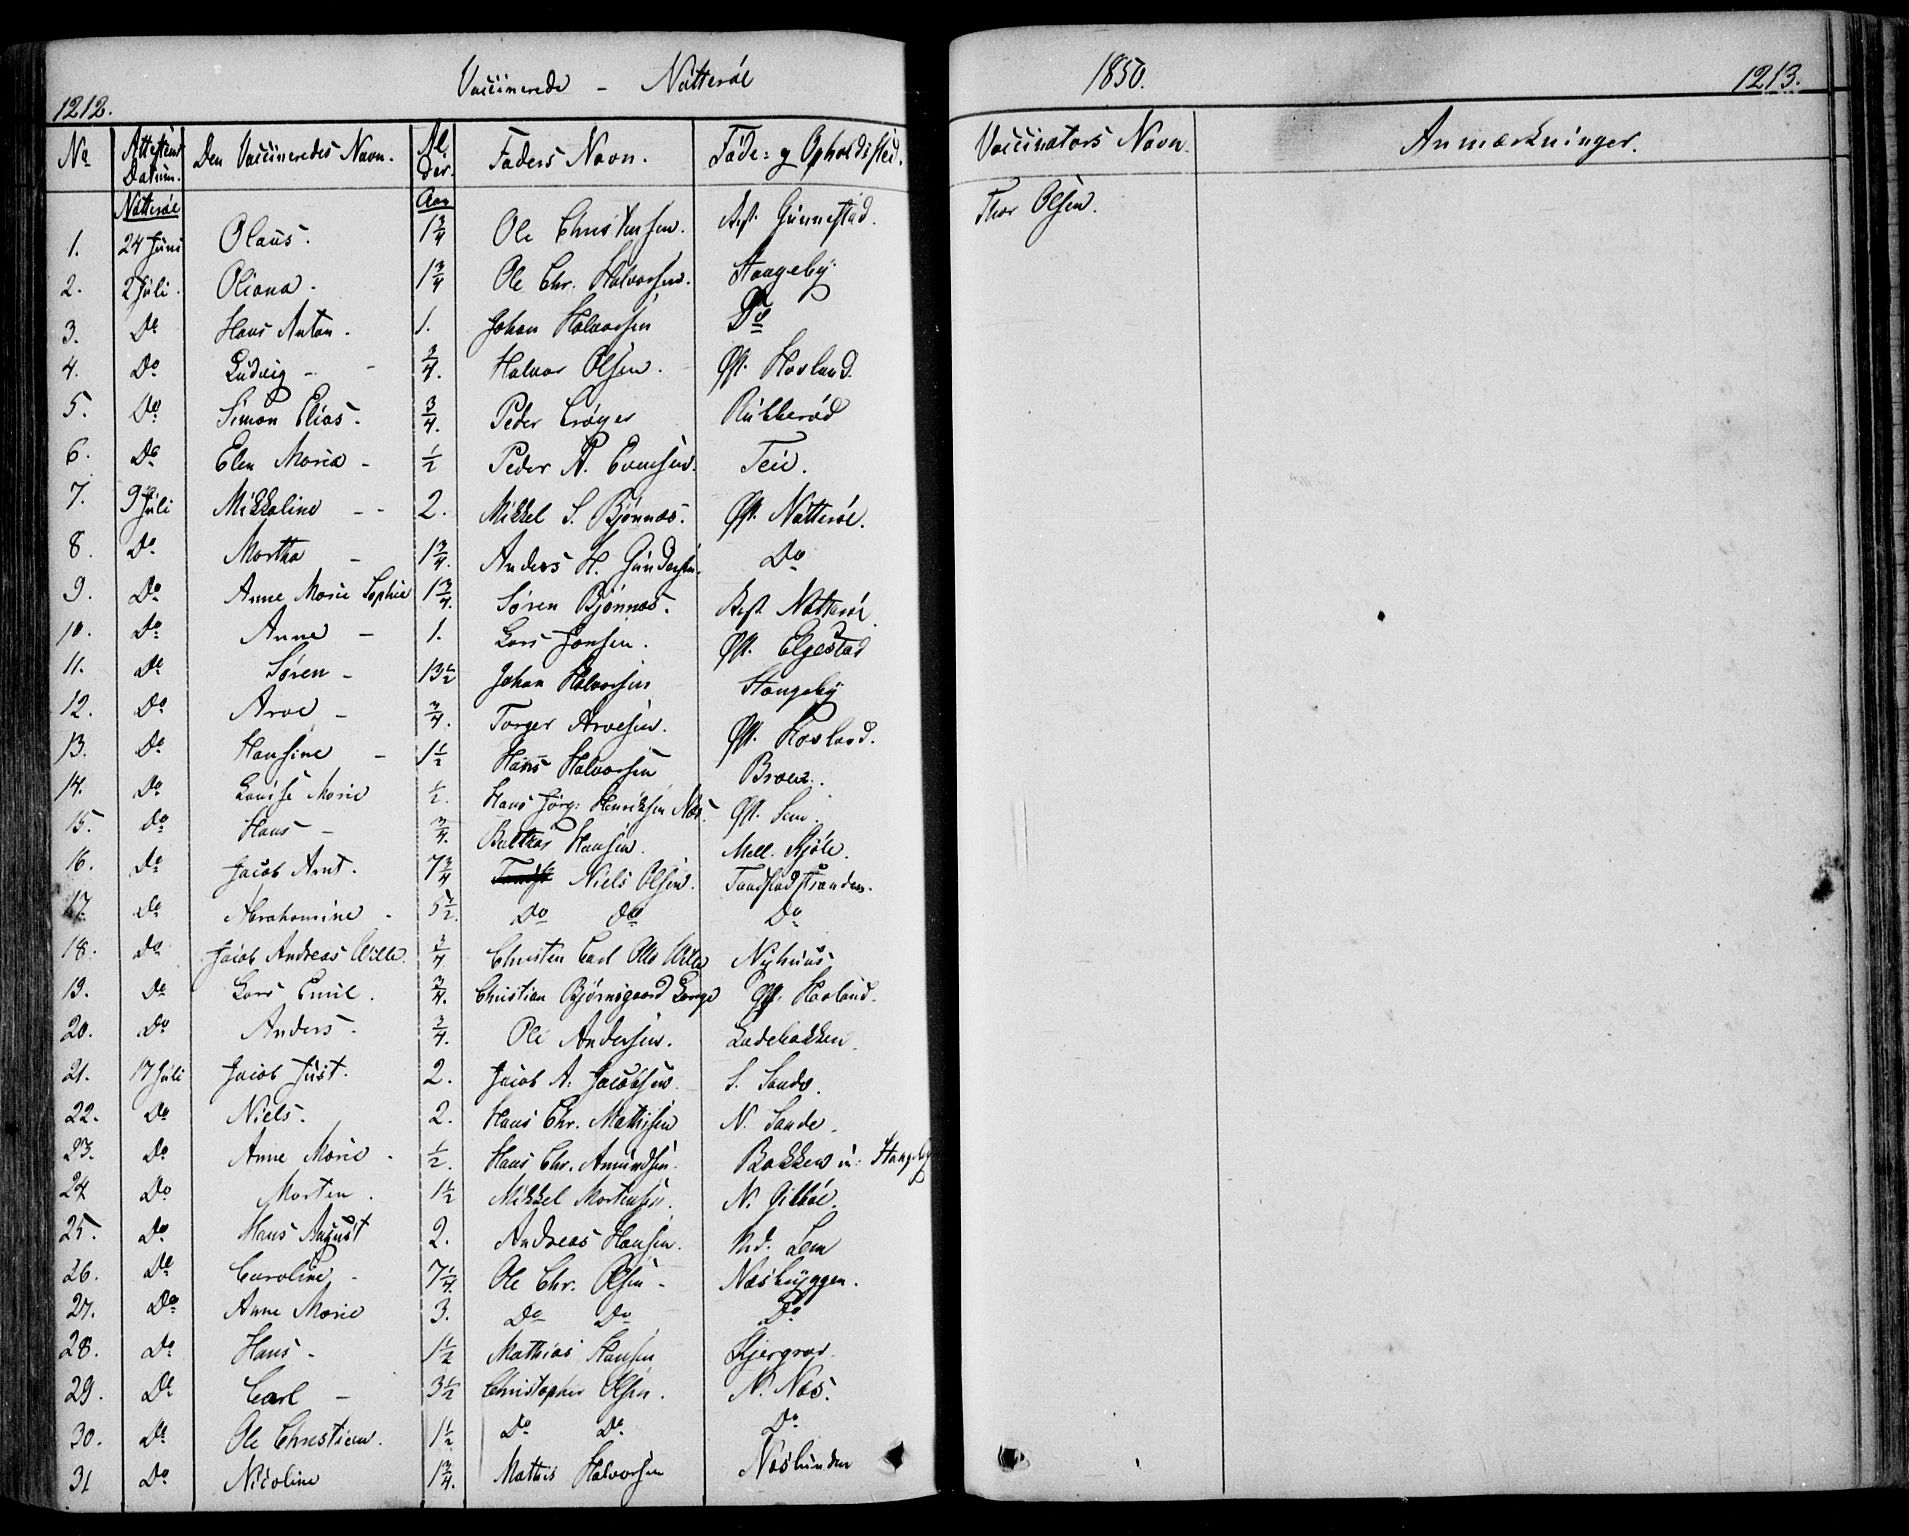 1212.
Vaccinerede – Nøtterøe
1850.
1213.
No Attestens Datum. Den Vaccineredes Navn. Alder. Faders Navn. Føde- og Opholdssted. Vaccinators Navn. Anmærkninger.
Nøtterøe Aar
1. 24 Juni Olaus. 1 3/4 Ole Christensen. Vest. Gunnestad. Thor Olsen.
2. 2 Juli. Oliana. 1 3/4 Ole Chr. Halvorsen. Stangeby
3. Do Hans Anton. 1. Johan Halvorsen Do
4. Do Ludvig – 3/4. Halvor Olsen. Øst. Hovland.
5. Do Simon Elias. 3/4. Peder Crøger Rubberød
6. Do Elen Maria – 1/2 Peder A. Evensen. Teie.
7. 9 Juli Mikkaline – – 2. Mikkel S. Bjønnæs. Øst. Nøtterøe.
8. Do Martha – 1 3/4. Anders H. Gundersen. Do
9. Do Anne Marie Sophie 1 3/4. Søren Bjønnæs. Vest. Nøtterøe
10. Do Anne – 1. Lars Jensen. Øst. Elgestad
11. Do Søren – 13 1/2 Johan Halvorsen Stangeby
12. Do Arve – 3/4. Torger Arvesen. Øst. Hovland.
13. Do Hansine – 1 1/2 Hans Halvorsen
14. Do Lovise Marie 1/2. Hans Jørg: Henriksen Næs. Øst. Sem.
15. Do Hans – 3/4. Balthas Hansen. Mell. Kjøle.
16. Do Jacob Arnt. 7 3/4 Niels Olsen. Fundstadstranden.
17. Do Abrahamine – 5 1/2. Do Do Do
18. Do Jacob Andreas Wille. 3/4 Christen Carl Otto Wille Nyhuus
19. Do Lars Emil. 3/4. Christian Bjørnsgaard Lange Øst. Hovland.
20. Do Anders. 3/4. Ole Andersen. Ladebakken.
21. 17 Juli Jacob Just. 2. Jacob A. Jacobsen. S. Sande.
22. Do Niels. 2. Hans Chr. Mathisen N. Sande.
23. Do Anne Marie – 1/2. Hans Chr. Amundsen. Bakken u. Stangeby
24 Do Morten. 1 1/2 Mikkel Mortensen. N. Gibbøe.
25. Do Hans August 2. Andreas Hansen. Nd. Sem
26. Do Caroline – 7 1/4. Ole Chr. Olsen – Næsbryggen.
27. Do Anne Marie 3. Do Do Do
28. Do Hans – 1 1/2 Mathias Hansen Skjergrav.
29. Do Carl – 3 1/2 Christopher Olsen. N. Næs.
30. Do Ole Christian. 1 1/2. Do Do Do
31 Do Nicoline 1 3/4. Mathis Halvorsen Næslunden